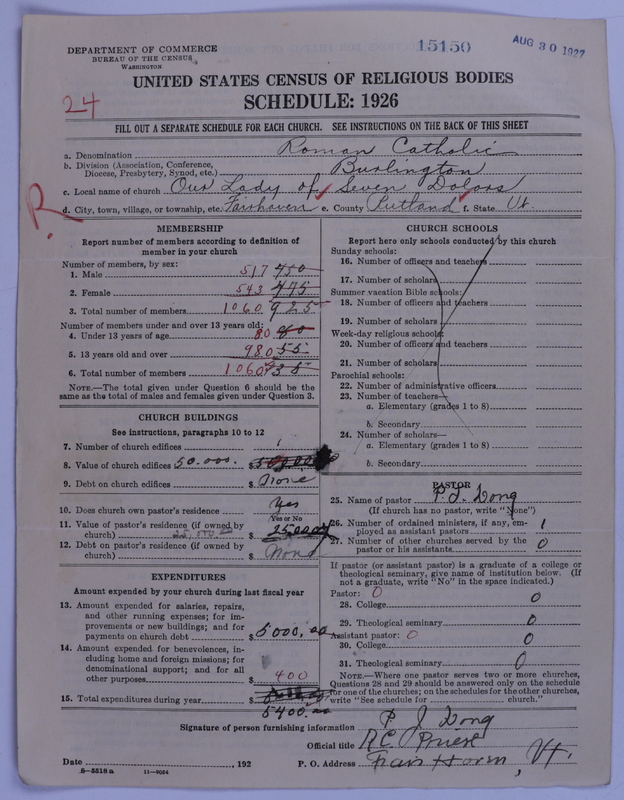 DEPARTMENT OF COMMERCE
BUREAU OF THE CENSUS
WASHINGTON
15150
AUG 30 1927
UNITED STATES CENSUS OF RELIGIOUS BODIES
SCHEDULE: 1926
24
FILL OUT A SEPARATE SCHEDULE FOR EACH CHURCH. SEE INSTRUCTIONS ON THE BACK OF THIS SHEET
a. Denomination Roman Catholic
b. Division (Association, Conference, Diocese, Presbytery, Synod, etc.) Burlington
c. Local name of church Our Lady of Seven Dolors
R.
d. City, town, village, or township, etc. Fairhaven e. County Rutland f. State Vt.
MEMBERSHIP
Report number of members according to definition of
member in your church
Number of members, by sex:
1. Male 517 450
2. Female 543 475
3. Total number of members 1060 925
Number of members under and over 13 years old:
4. Under 13 years of age 80
5. 13 years old and over 980 55
6. Total number of members 1060 35
NOTE.—The total given under Question 6 should be the
same as the total of males and females given under Question 3.
CHURCH BUILDINGS
See instructions, paragraphs 10 to 12
7. Number of church edifices 1
8. Value of church edifices 50.000. $
9. Debt on church edifices $ None
10. Does church own pastor's residence Yes
Yes or No
11. Value of pastor's residence (if owned by
church) 25,000.00 $ 25000
12. Debt on pastor's residence (if owned by
church) $ None
EXPENDITURES
Amount expended by your church during last fiscal year
13. Amount expended for salaries, repairs,
and other running expenses; for im-
provements or new buildings; and for
payments on church debt $ 5000.00
14. Amount expended for benevolences, in-
cluding home and foreign missions; for
denominational support; and for all
other purposes $ 400
15. Total expenditures during year $
5400.00
CHURCH SCHOOLS
Report here only schools conducted by this church
Sunday schools:
16. Number of officers and teachers
17. Number of scholars
Summer vacation Bible schools:
18. Number of officers and teachers
19. Number of scholars
Week-day religious schools:
20. Number of officers and teachers
21. Number of scholars
Parochial schools:
22. Number of administrative officers
23. Number of teachers—
a. Elementary (grades 1 to 8)
b. Secondary
24. Number of scholars—
a. Elementary (grades 1 to 8)
b. Secondary
PASTOR
25. Name of pastor P. J. Long
(If church has no pastor, write "None")
26. Number of ordained ministers, if any, em-
ployed as assistant pastors 1
27. Number of other churches served by the
pastor or his assistants 0
If pastor (or assistant pastor) is a graduate of a college or
theological seminary, give name of institution below. (If
not a graduate, write "No" in the space indicated.)
Pastor: 0
28. College 0
29. Theological seminary 0
Assistant pastor: 0
30. College 0
31. Theological seminary 0
NOTE.—Where one pastor serves two or more churches,
Questions 28 and 29 should be answered only on the schedule
for one of the churches; on the schedules for the other churches,
write "See schedule for church."
Signature of person furnishing information P J Long
Official title R.C. Priest
Date , 192 P. O. Address Fair Haven, Vt.
8—5518 a 11—9054